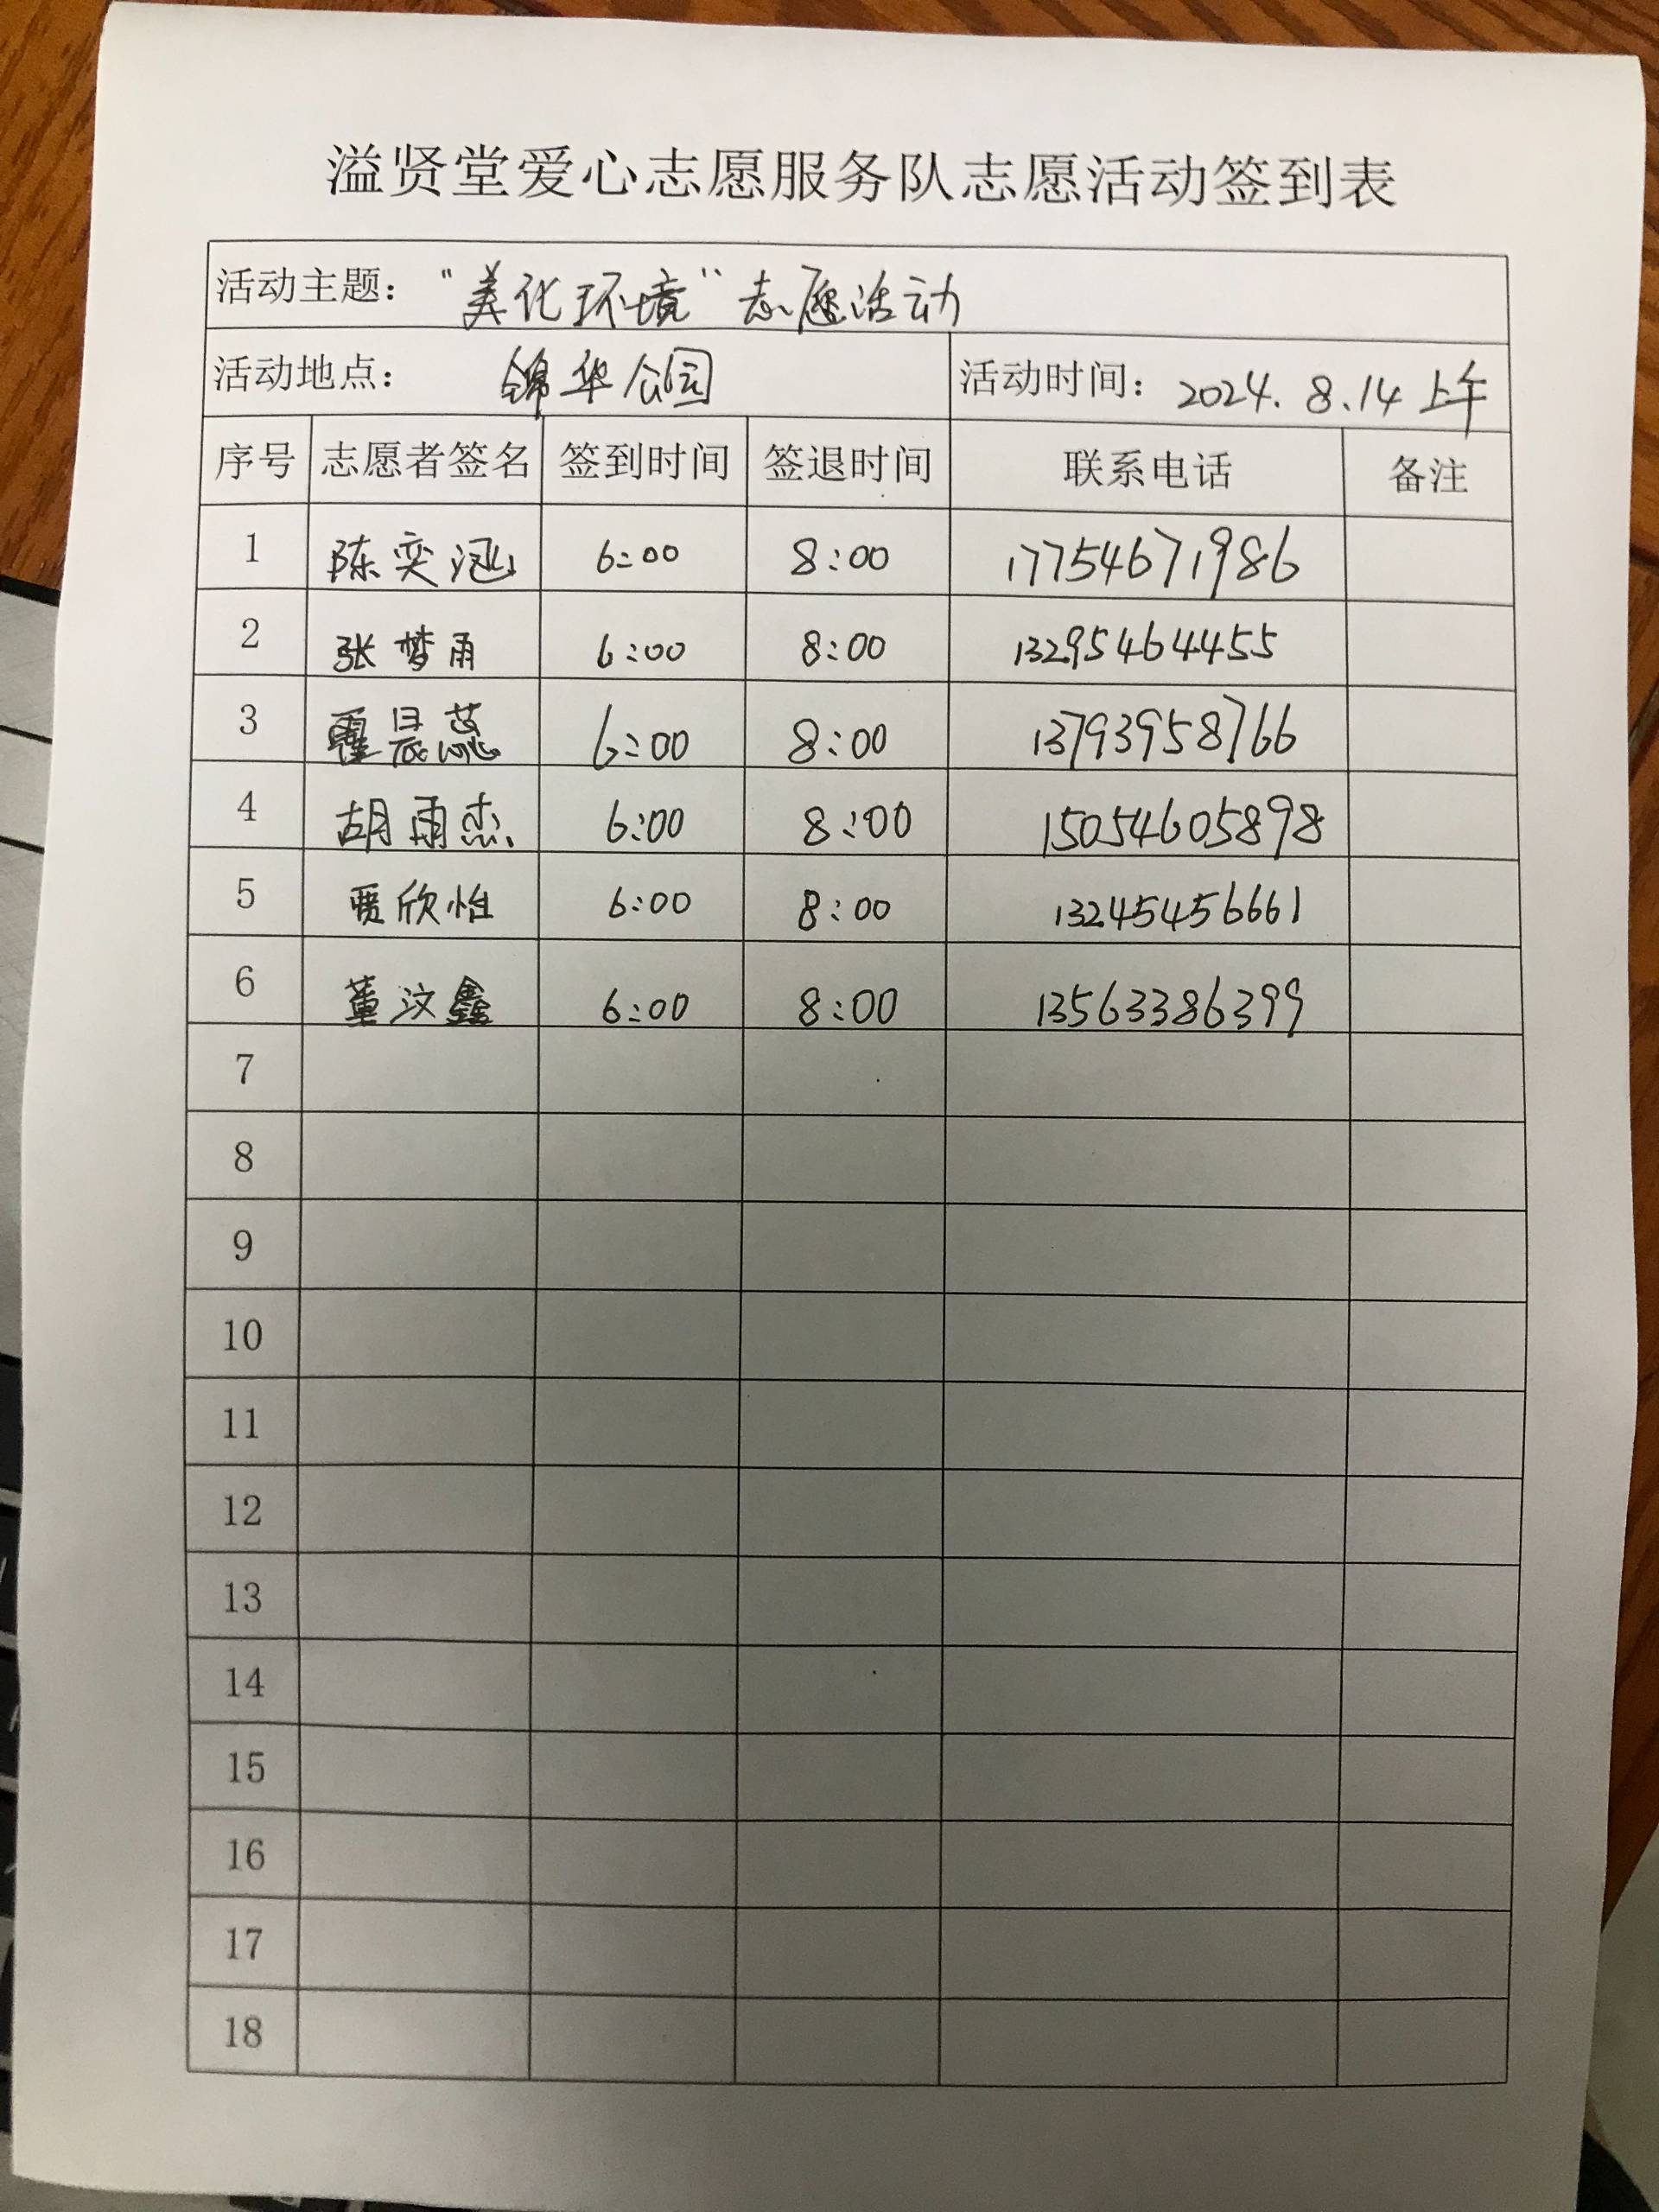 溢贤堂爱心志愿服务队志愿活动签到表
活动主题： “美化环境”志愿活动
活动地点： 锦华公园 活动时间： 2024.8.14上午
序号 志愿者签名 签到时间 签退时间 联系电话 备注
1 陈奕涵 6:00 8:00 17754671986
2 张梦雨 6:00 8:00 13295464455
3 霍晨蕊 6:00 8:00 13793958766
4 胡雨杰 6:00 8:00 15054605898
5 贾欣怡 6:00 8:00 13245456661
6 董汶鑫 6:00 8:00 13563386399
7
8
9
10
11
12
13
14
15
16
17
18